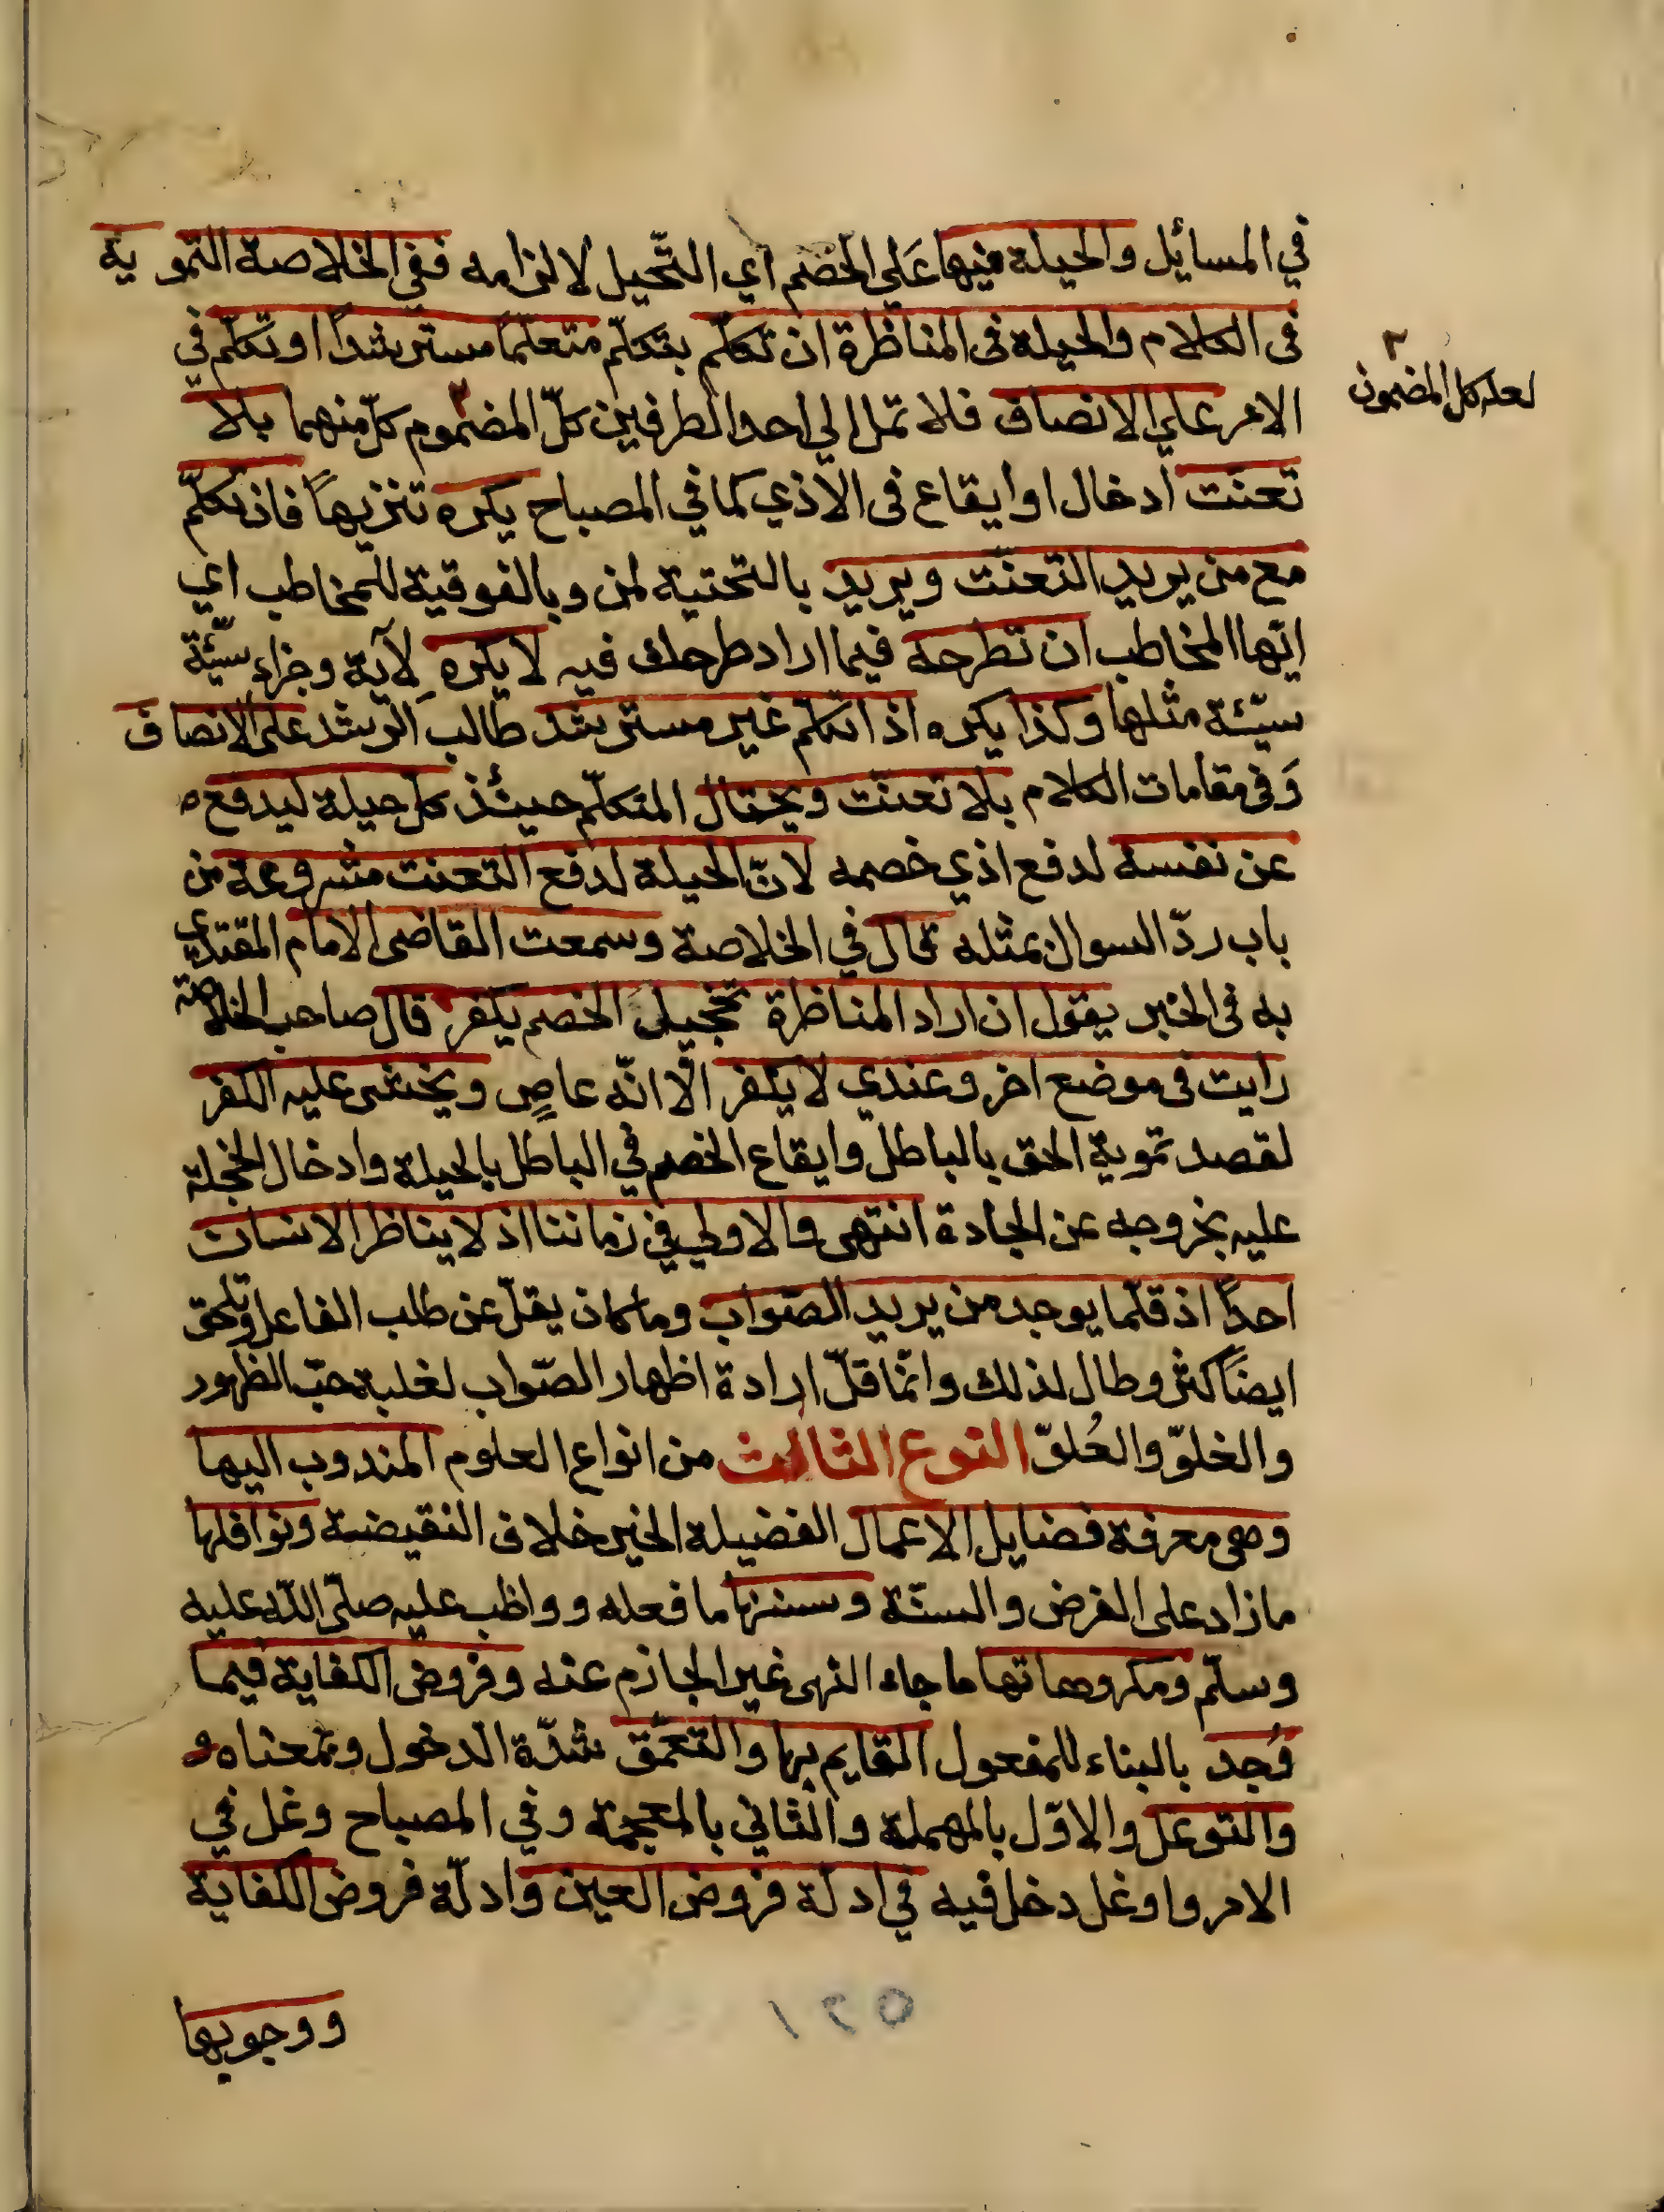 في المسائيل والحيلة فيها عَلي الخصم اي التّحيل لالزامه ففي الخلاصة التمويه
في الكلام والحيلة في المناظرة ان تكلم بتكلّم متعلّماً مسترشداً او تكلّم في
الامر علي الانصاف فلا تمل الي احد الطرفين كلّ المضموم كلّ منهما بلا
تعنّت ادخال او ايقاع في الاذي كما في المصباح يكره تنزيهاً فان تكلّم
مع من يريد التعنّت ويريد بالتحتية لمن وبالفوقية للمخاطب اي
ايّها المخاطب ان تطرحه فيما اراد طرحك فيه لا يكره لِآية وجزاء سيّئة
سيّئة مثلها وكذا يكره اذا تكلم غير مسترشد طالب الرشد على الانصاف
وَفي مقامات الكلام بلا تعنّت ويحتال المتكلّم حينئذ كل حيلة ليدفع ه
عن نفسه لدفع اذي خصمه لانّ الحيلة لدفع التعنت مشروعة من
باب ردّ السوال بمثله قال في الخلاصة وسمعت القاضي الامام المقتدي
به في الخبر يقول ان اراد المناظرة تخجيلَ الخصم يكفر قال صاحب الخلاصة
رايت في موضع اخر وعندي لا يكفر الّا انّه عاصٍ ويخشى عليه الكفر
لقصد تموية الحق بالباطل وايقاع الخصم في الباطل بالحيلة وادخال الخجلة
عليه بخروجه عن الجادة انتهى والاولي في زماننا اذ لا يناظر الانسان
احداً اذ قلّما يوجد من يريد الصّواب وما كان يقلّ عن طلب الفاعل وتلحق
ايضَاً كثر وطال لذلك وانّما قلّ ارادة اظهار الصّواب لغلبة حبّ الظهور
والغلوّ والعُلوّ النوع الثالث من انواع العلوم المندوب اليها
وهي معرفة فضايل الاعمال الفضيلة الخير خلاف النقيضة ونوافلها
ما زاد على الفرض والسنّة وسننها ما فعله وواظب عليه صلّى اللّه عليه
وسلّم ومكروهاتها ما جاء النهى غير الجازم عنه وفروض الكفاية فيما
وُجد بالبناء للمفعول القايم بها والتعمّق شدّة الدخول وبمعناه و
والتوغل والاوّل بالمهملة والثاني بالمعجمة وفي المصباح وغل في
الامر واوغل دخل فيه في ادلّة فروض العين وادلّة فروض الكفاية
ووجوبها
٢
لعله كل المضمون
١٢٥